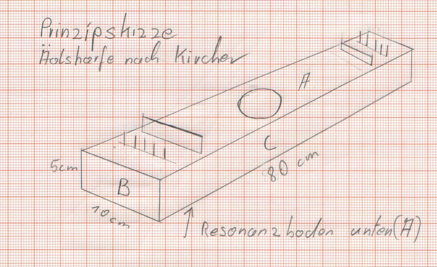 Prinzipskizze
Äolsharfe nach Kircher
A
C
80 cm
5cm
B
10cm
Resonanzboden unten (A)